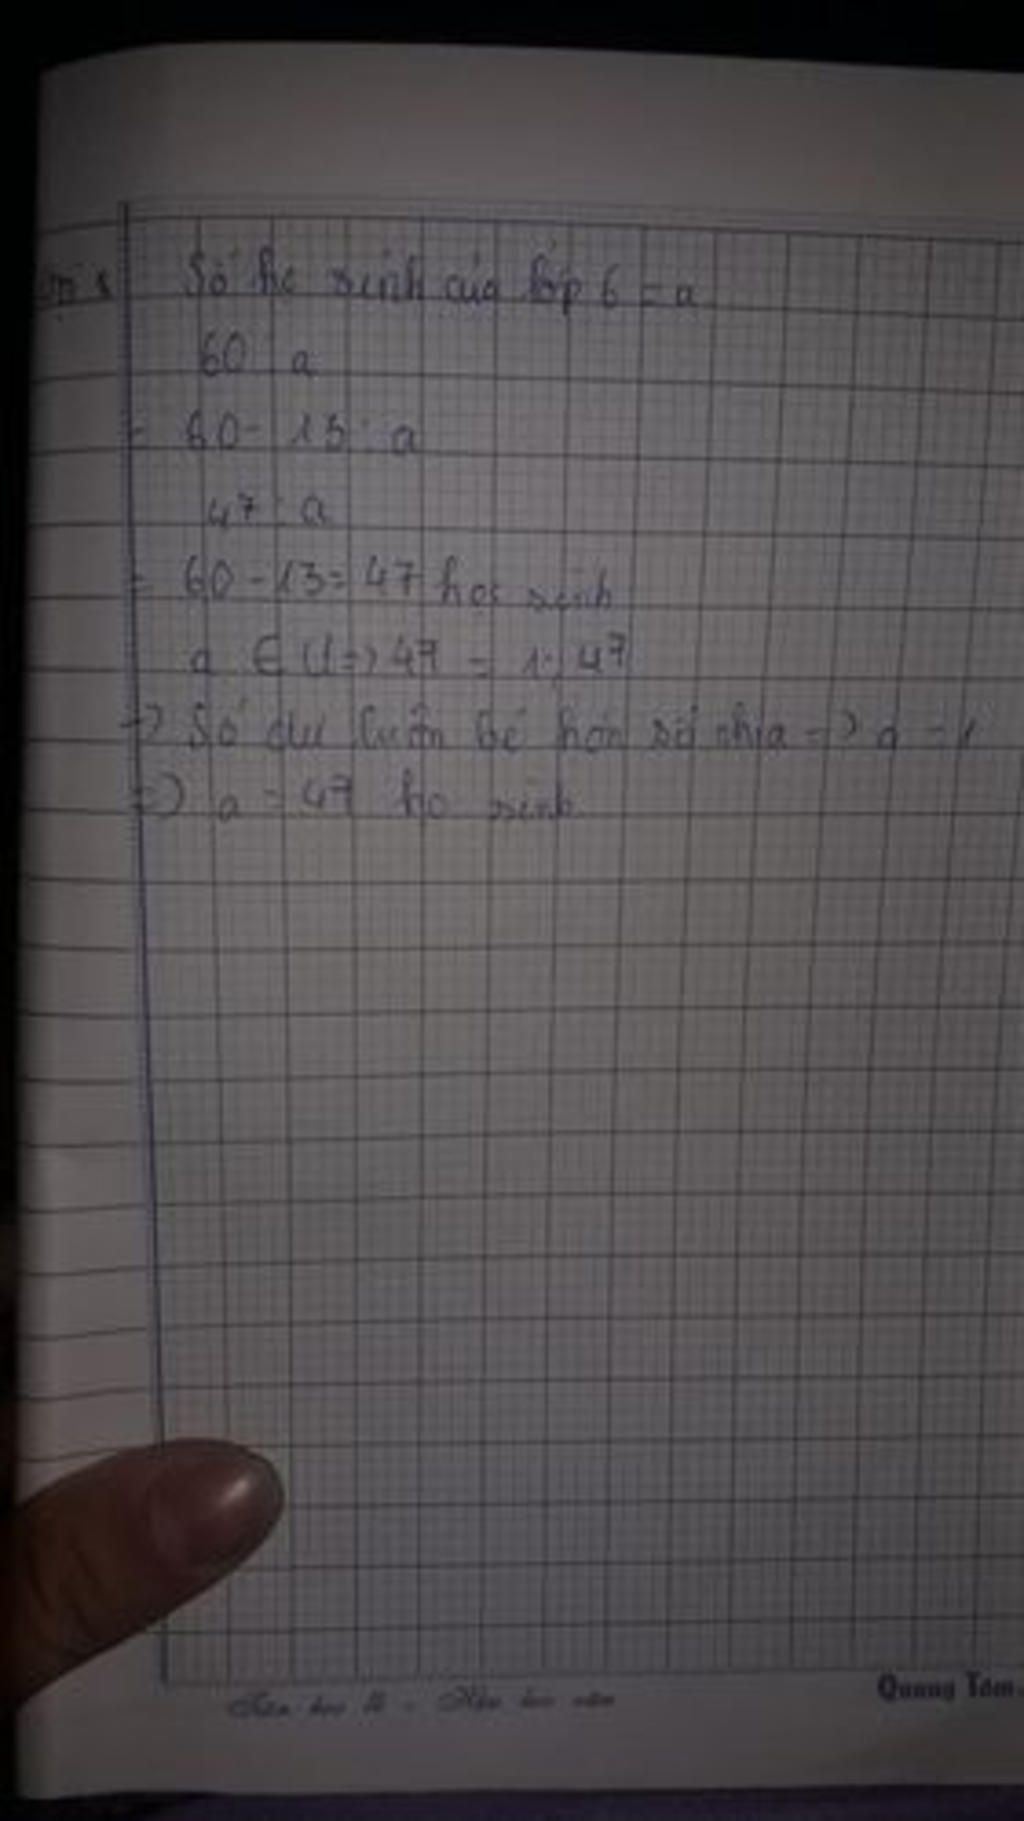 Số hc sinh của lớp 6 = a
60 : a
= 60 - 13 : a
47 : a
= 60 - 13 = 47 học sinh
a ∈ Ư => 47 = 1; 47
=> Số dư luôn bé hơn số chia => a = 1
=> a = 47 họ sinh
Tiên học lễ - Hậu học văn
Quang Tâm